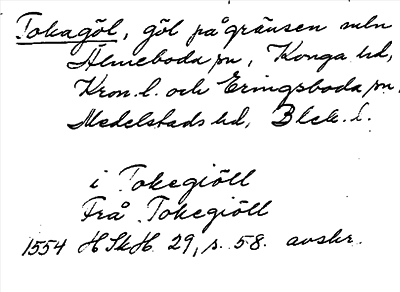 Tokagöl, göl på gränsen mln
Älmeboda sn, Konga hd,
Kron. l. och Eringsboda sn,
Medelstads hd, Blek. l.
i Tokegiöll
Frå Tokegiöll
1554 HSkH 29, s. 58. avskr.